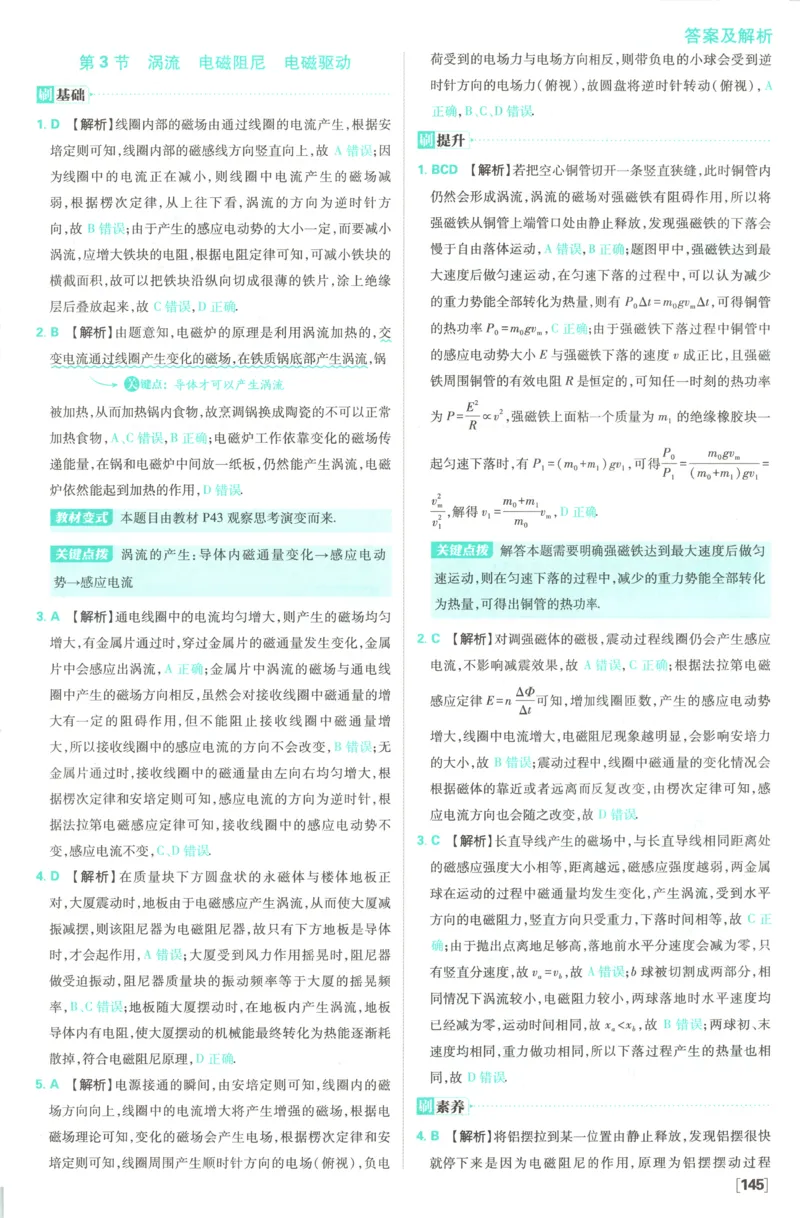 答案及解析
第3节 涡流 电磁阻尼 电磁驱动
刷基础
1. D 【解析】线圈内部的磁场由通过线圈的电流产生,根据安
培定则可知,线圈内部的磁感线方向竖直向上,故 A 错误;因
为线圈中的电流正在减小,则线圈中电流产生的磁场减
弱,根据楞次定律,从上往下看,涡流的方向为逆时针方
向,故 B 错误;由于产生的感应电动势的大小一定,而要减小
涡流,应增大铁块的电阻,根据电阻定律可知,可减小铁块的
横截面积,故可以把铁块沿纵向切成很薄的铁片,涂上绝缘
层后叠放起来,故 C 错误,D 正确.
2. B 【解析】由题意知,电磁炉的原理是利用涡流加热的,交
变电流通过线圈产生变化的磁场,在铁质锅底部产生涡流,锅
关键点:导体才可以产生涡流
被加热,从而加热锅内食物,故烹调锅换成陶瓷的不可以正常
加热食物,A、C 错误,B 正确;电磁炉工作依靠变化的磁场传
递能量,在锅和电磁炉中间放一纸板,仍然能产生涡流,电磁
炉依然能起到加热的作用,D 错误.
教材变式 本题目由教材 P43 观察思考演变而来.
关键点拨 涡流的产生:导体内磁通量变化→感应电动
势→感应电流
3. A 【解析】通电线圈中的电流均匀增大,则产生的磁场均匀
增大,有金属片通过时,穿过金属片的磁通量发生变化,金属
片中会感应出涡流,A 正确;金属片中涡流的磁场与通电线
圈中产生的磁场方向相反,虽然会对接收线圈中磁通量的增
大有一定的阻碍作用,但不能阻止接收线圈中磁通量增
大,所以接收线圈中的感应电流的方向不会改变,B 错误;无
金属片通过时,接收线圈中的磁通量由左向右均匀增大,根
据楞次定律和安培定则可知,感应电流的方向为逆时针,根
据法拉第电磁感应定律可知,接收线圈中的感应电动势不
变,感应电流不变,C、D 错误.
4. D 【解析】在质量块下方圆盘状的永磁体与楼体地板正
对,大厦震动时,地板由于电磁感应产生涡流,从而使大厦减
振减摆,则该阻尼器为电磁阻尼器,故只有下方地板是导体
时,才会起作用,A 错误;大厦受到风力作用摇晃时,阻尼器
做受迫振动,阻尼器质量块的振动频率等于大厦的摇晃频
率,B、C 错误;地板随大厦摆动时,在地板内产生涡流,地板
导体内有电阻,使大厦摆动的机械能最终转化为热能逐渐耗
散掉,符合电磁阻尼原理,D 正确.
5. A 【解析】电源接通的瞬间,由安培定则可知,线圈内的磁
场方向向上,线圈中的电流增大将产生增强的磁场,根据电
磁场理论可知,变化的磁场会产生电场,根据楞次定律和安
培定则可知,线圈周围产生顺时针方向的电场(俯视),负电
荷受到的电场力与电场方向相反,则带负电的小球会受到逆
时针方向的电场力(俯视),故圆盘将逆时针转动(俯视),A
正确,B、C、D 错误.
刷提升
1. BCD 【解析】若把空心铜管切开一条竖直狭缝,此时铜管内
仍然会形成涡流,涡流的磁场对强磁铁有阻碍作用,所以将
强磁铁从铜管上端管口处由静止释放,发现强磁铁的下落会
慢于自由落体运动,A 错误,B 正确;题图甲中,强磁铁达到最
大速度后做匀速运动,在匀速下落的过程中,可以认为减少
的重力势能全部转化为热量,则有 P₀Δt=m₀gvₘΔt,可得铜管
的热功率 P₀=m₀gvₘ,C 正确;由于强磁铁下落过程中铜管中
的感应电动势大小 E 与强磁铁下落的速度 v 成正比,且强磁
铁周围铜管的有效电阻 R 是恒定的,可知任一时刻的热功率
为 P=E²/R∝v²,强磁铁上面粘一个质量为 m₁ 的绝缘橡胶块一
起匀速下落时,有 P₁=(m₀+m₁)gv₁,可得 P₀/P₁=m₀gvₘ/(m₀+m₁)gv₁=
vₘ²/v₁²,解得 v₁=(m₀+m₁)/m₀ vₘ,D 正确.
关键点拨 解答本题需要明确强磁铁达到最大速度后做匀
速运动,则在匀速下落的过程中,减少的重力势能全部转化
为热量,可得出铜管的热功率.
2. C 【解析】对调强磁体的磁极,震动过程线圈仍会产生感应
电流,不影响减震效果,故 A 错误,C 正确;根据法拉第电磁
感应定律 E=n ΔΦ/Δt 可知,增加线圈匝数,产生的感应电动势
增大,线圈中电流增大,电磁阻尼现象越明显,会影响安培力
的大小,故 B 错误;震动过程中,线圈中磁通量的变化情况会
根据磁体的靠近或者远离而反复改变,由楞次定律可知,感
应电流方向也会随之改变,故 D 错误.
3. C 【解析】长直导线产生的磁场中,与长直导线相同距离处
的磁感应强度大小相等,距离越远,磁感应强度越弱,两金属
球在运动的过程中磁通量均发生变化,产生涡流,受到水平
方向的电磁阻力,竖直方向只受重力,下落时间相等,故 C 正
确;由于抛出点离地足够高,落地前水平分速度会减为零,只
有竖直分速度,故 vₐ=v_b,故 A 错误;b 球被切割成两部分,相
同情况下涡流较小,电磁阻力较小,两球落地时水平速度均
已经减为零,运动时间相同,故 xₐ<x_b,故 B 错误;两球初、末
速度均相同,重力做功相同,所以下落过程产生的热量也相
同,故 D 错误.
刷素养
4. B 【解析】将铝摆拉到某一位置由静止释放,发现铝摆很快
就停下来是因为电磁阻尼的作用,原理为铝摆摆动过程
[145]